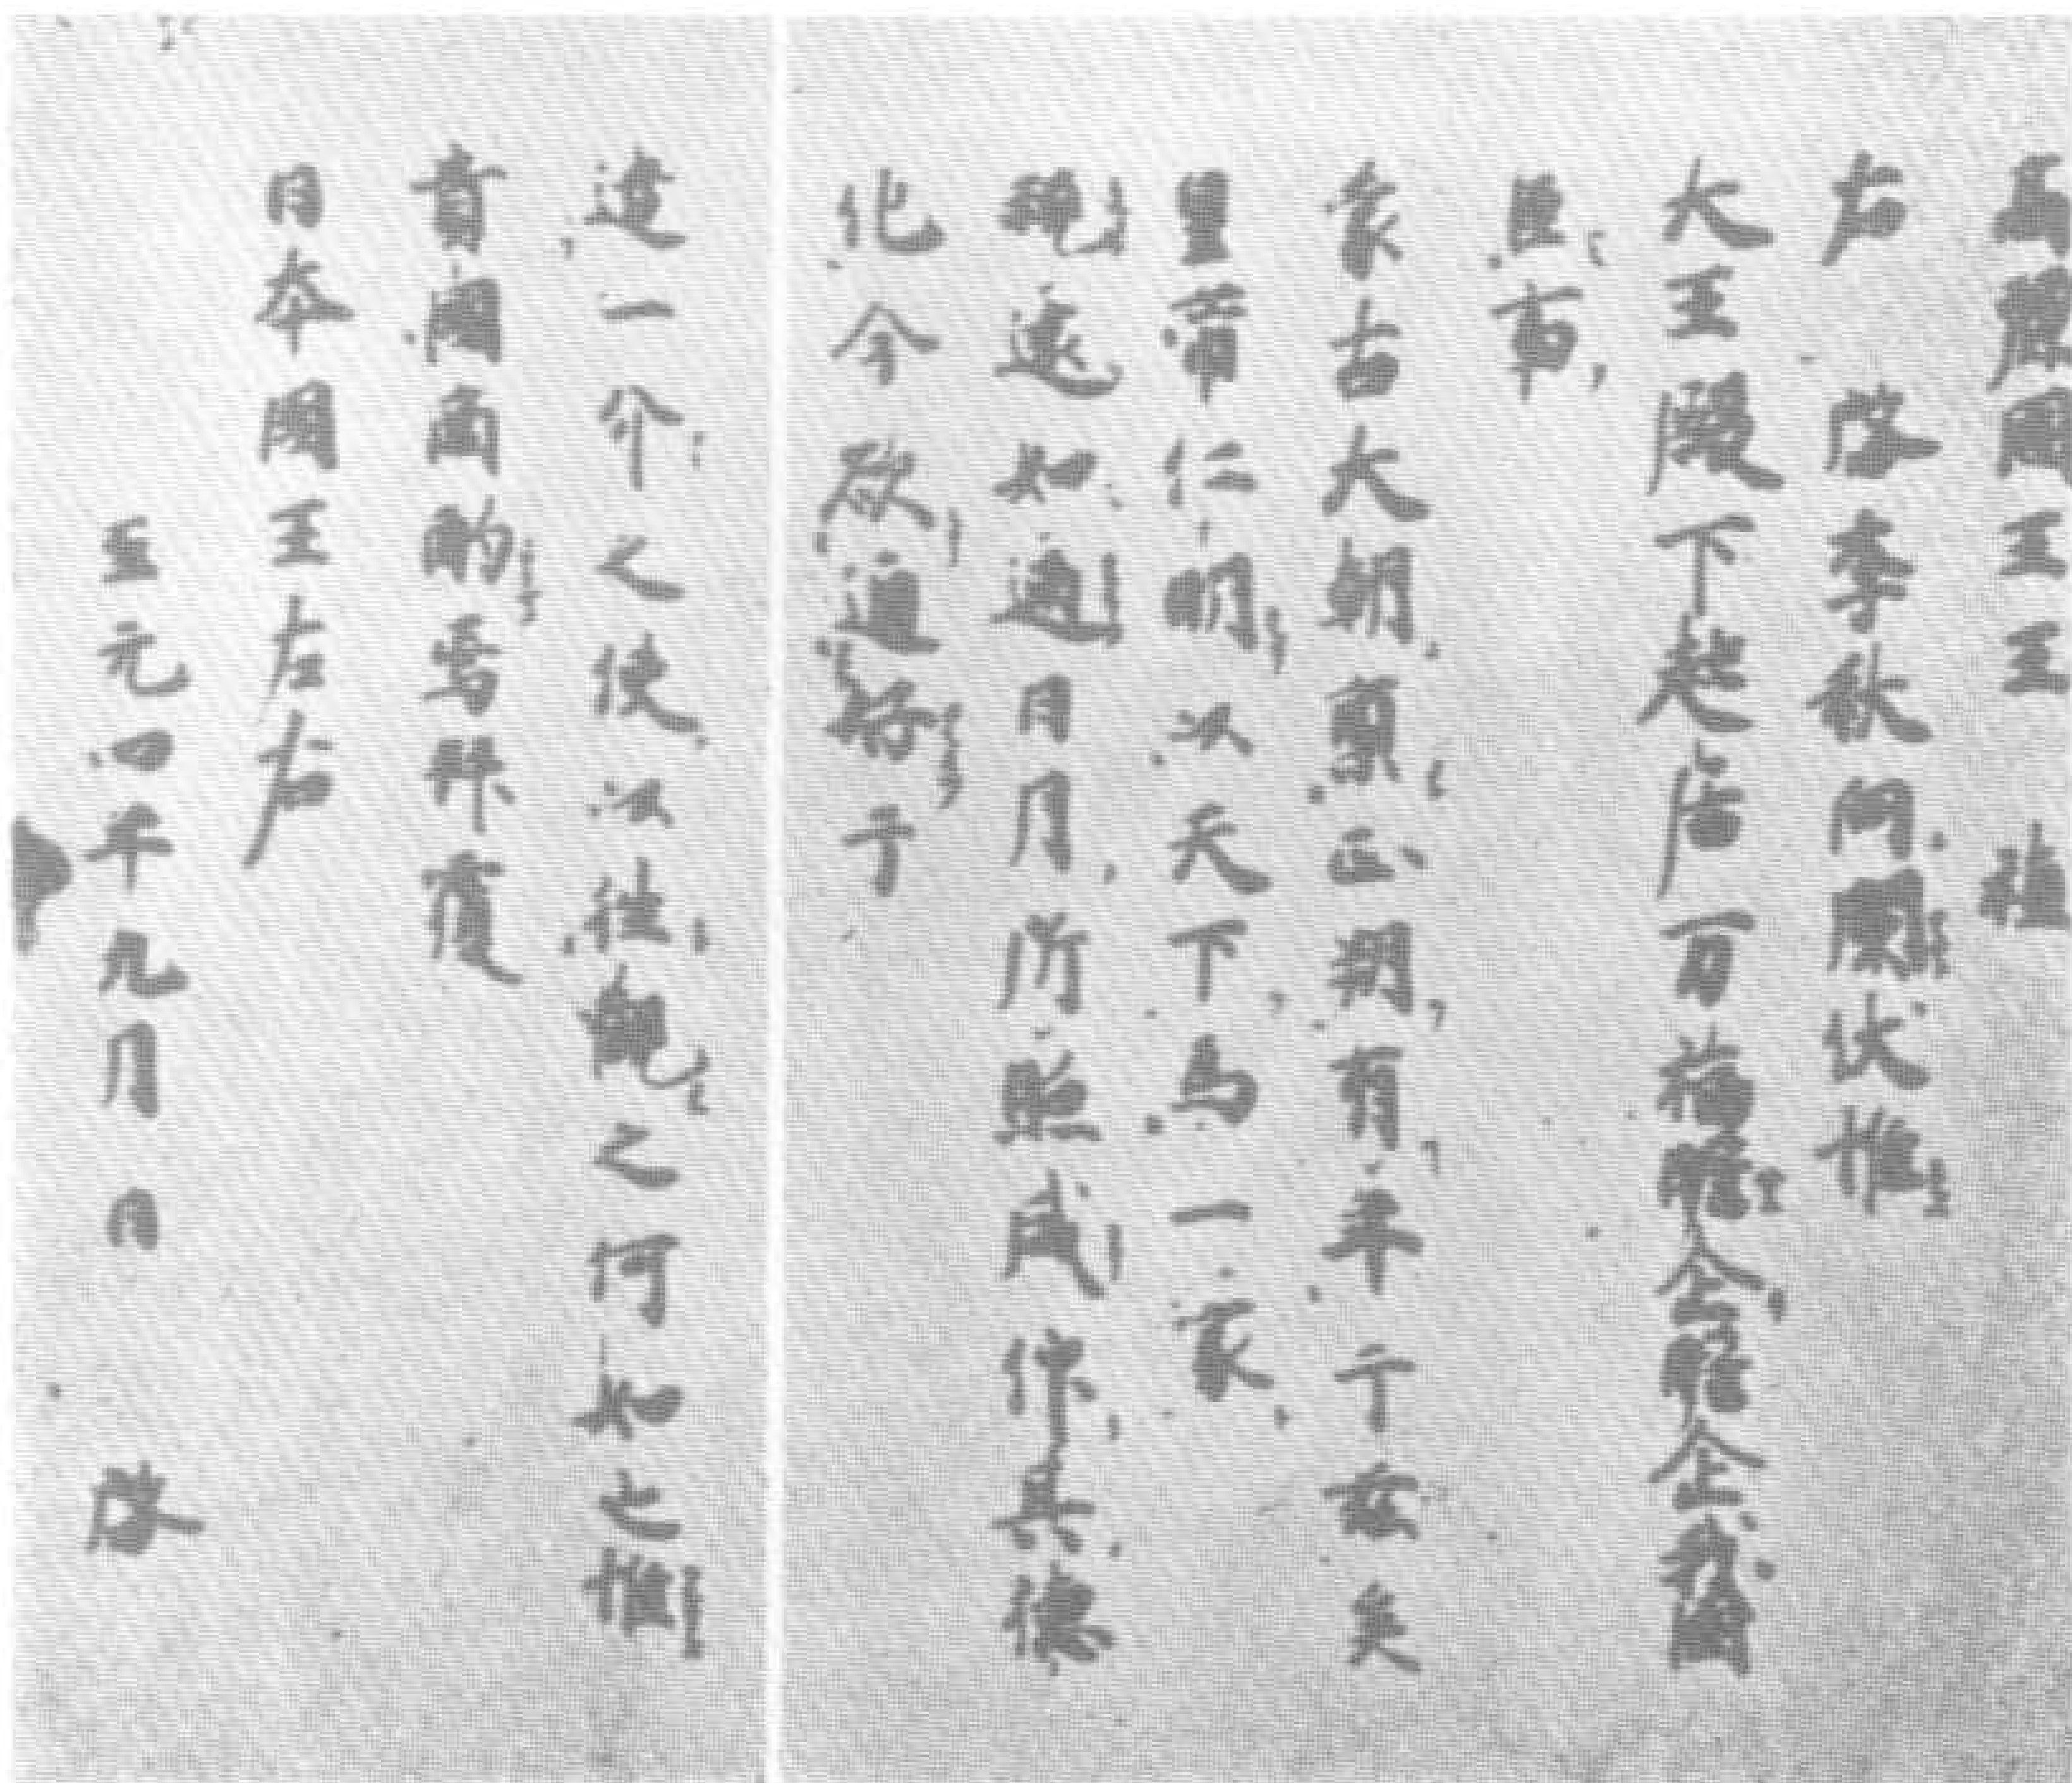 高麗國王王 植
右 啓季秋向闌伏惟
大王殿下起居万福瞻企瞻企我國
臣事
蒙古大朝稟正朔有年于玆矣
皇帝仁明以天下爲一家
視遠如邇日月所照咸仰其德
化今欲通好于
遣一介之使以往觀之何如也惟
貴國商酌焉拜覆
日本國王左右
至元四年九月 日 啓